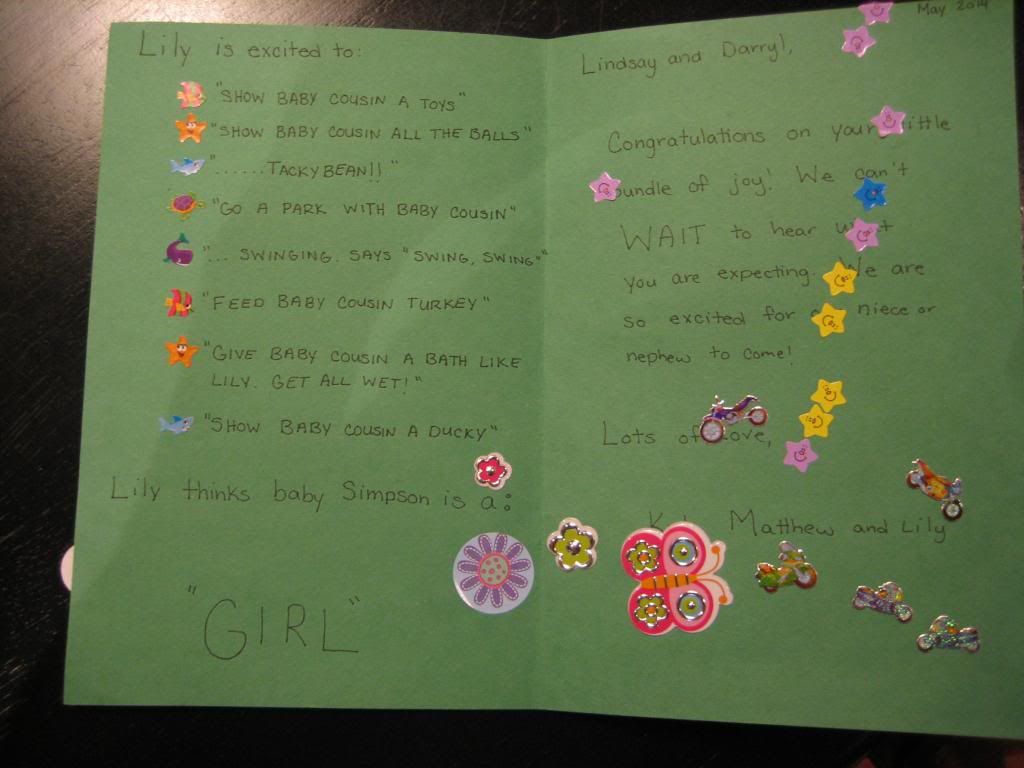 Lily is excited to:
"SHOW BABY COUSIN A TOYS"
"SHOW BABY COUSIN ALL THE BALLS"
"......TACKYBEAN!!"
"GO A PARK WITH BABY COUSIN"
"... SWINGING. SAYS "SWING, SWING""
"FEED BABY COUSIN TURKEY"
"GIVE BABY COUSIN A BATH LIKE
LILY. GET ALL WET!"
"SHOW BABY COUSIN A DUCKY"
Lily thinks baby Simpson is a:
"GIRL"
May 2014
Lindsay and Darryl,
Congratulations on your little
bundle of joy! We can't
WAIT to hear what
you are expecting. We are
so excited for a niece or
nephew to come!
Lots of Love,
Matthew and Lily